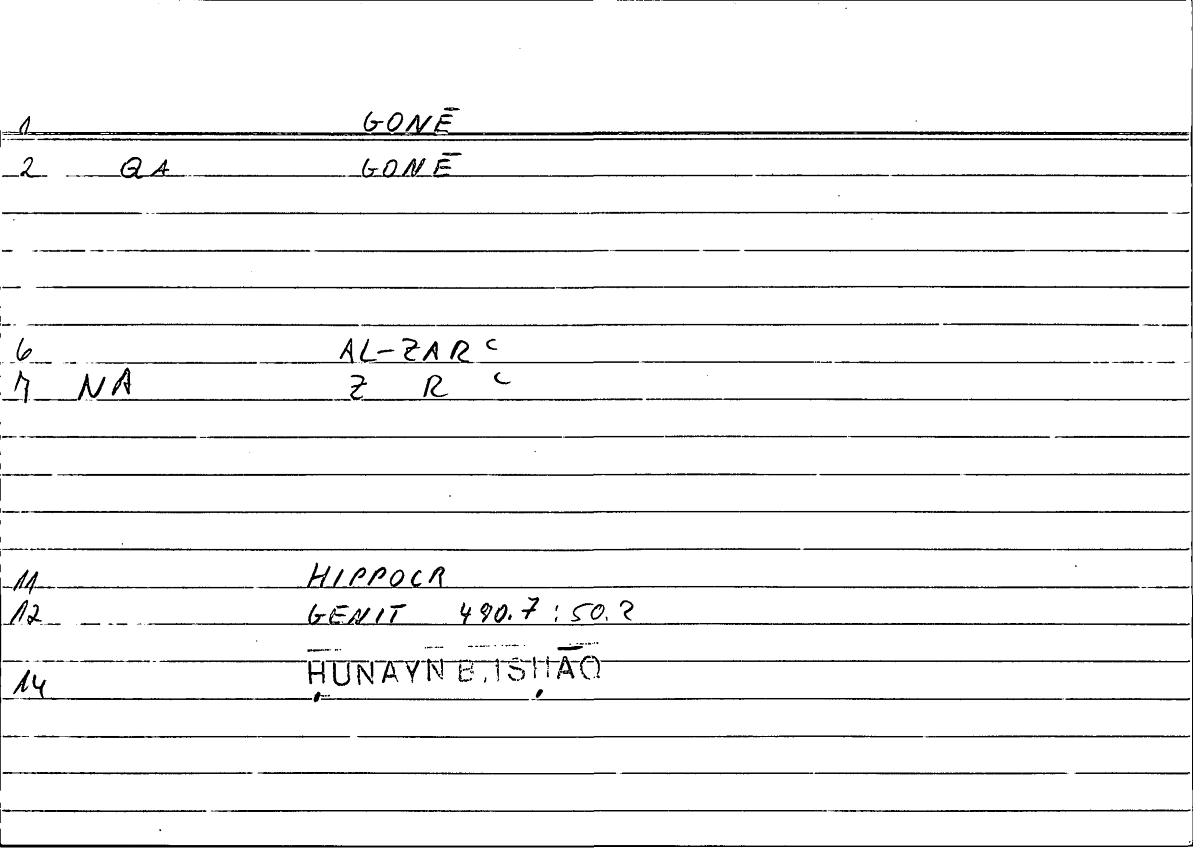 1 GONĒ
2 QA GONĒ
6 AL-ZARᶜ
7 NA Z R ᶜ
11 HIPPOCR
12 GENIT 490.7 : 50.2
14 ḤUNAYN B. ISḤĀQ